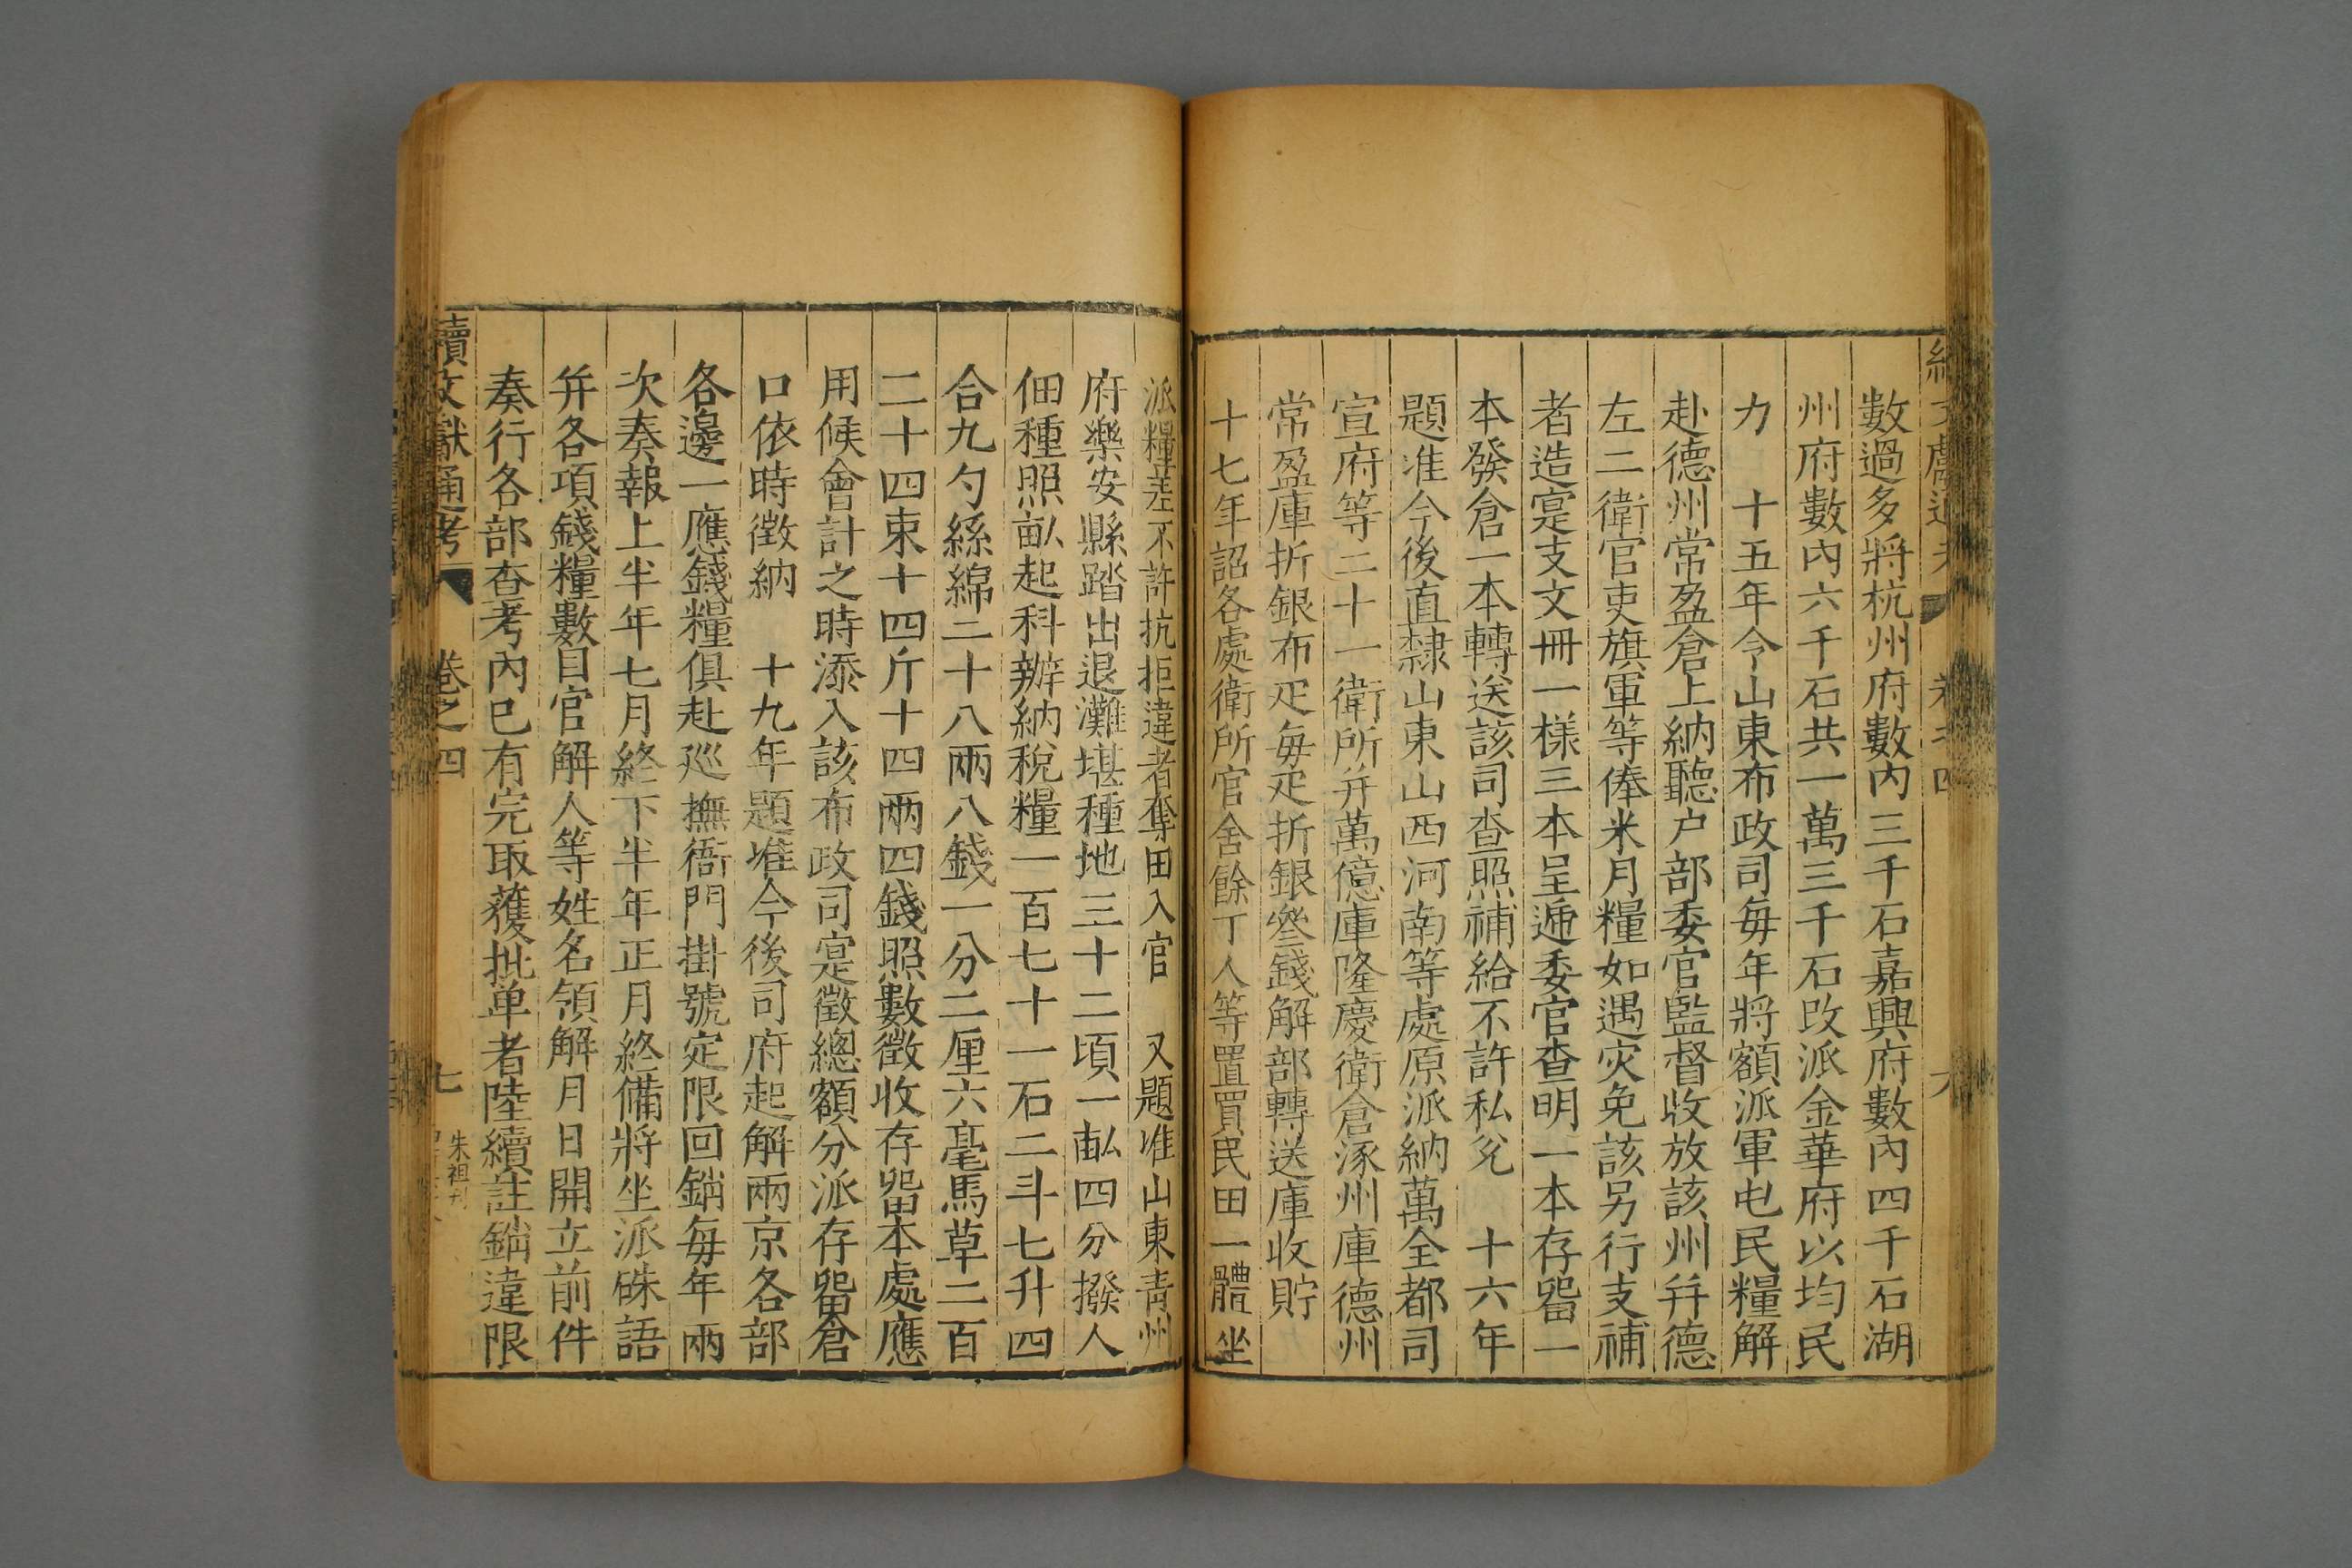 數過多將杭州府數內三千石嘉興府數內四千石湖
州府數內六千石共一萬三千石改派金華府以均民
力　十五年令山東布政司每年將額派軍屯民糧解
赴德州常盈倉上納聽户部委官監督收放該州并德
左二衛官吏旗軍等俸米月糧如遇灾免該另行支補
者造寔支文冊一樣三本呈逓委官查明一本存畱一
本發倉一本轉送該司查照補給不許私兌　十六年
題准今後直隸山東山西河南等處原派納萬全都司
宣府等二十一衛所并萬億庫隆慶衛倉涿州庫德州
常盈庫折銀布疋每疋折銀叄錢解部轉送庫收貯
十七年詔各處衛所官舍餘丁人等置買民田一體坐
派糧差不許抗拒違者奪田入官　又題准山東青州
府樂安縣踏出退灘堪種地三十二頃一畝四分撥人
佃種照畝起科辦納稅糧一百七十一石二斗七升四
合九勺絲綿二十八兩八錢一分二厘六毫馬草二百
二十四束十四斤十四兩四錢照數徵收存畱本處應
用候會計之時添入該布政司寔徵總額分派存畱倉
口依時徵納　十九年題准今後司府起解兩京各部
各邊一應錢糧俱赴廵撫衙門掛號定限回銷每年兩
次奏報上半年七月終下半年正月終備將坐派硃語
并各項錢糧數目官解人等姓名領解月日開立前件
奏行各部查考內已有完取獲批单者陸續註銷違限
續文獻通考　卷之四　七　朱祖刊